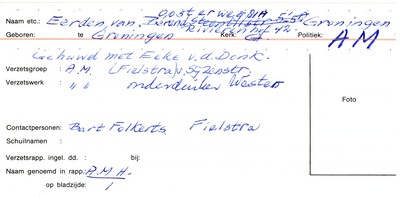 Oosterweg 81A
Naam etc.: Eerden van, Groningen
Rivierenhof 42.
Geboren: te Groningen Kerk: G Politiek: AM
Gehuwd met Eeke v.d. Donk.
Verzetsgroep : A.M. (Fielstra) v. Sijzenstr.
Verzetswerk : " " onderduiker Westen
Foto
Contactpersonen: Bart Folkerts Fielstra
Schuilnamen :
Verzetsrapp. ingel. dd. : bij:
Naam genoemd in rapp.: A.M.H.
op bladzijde: 1